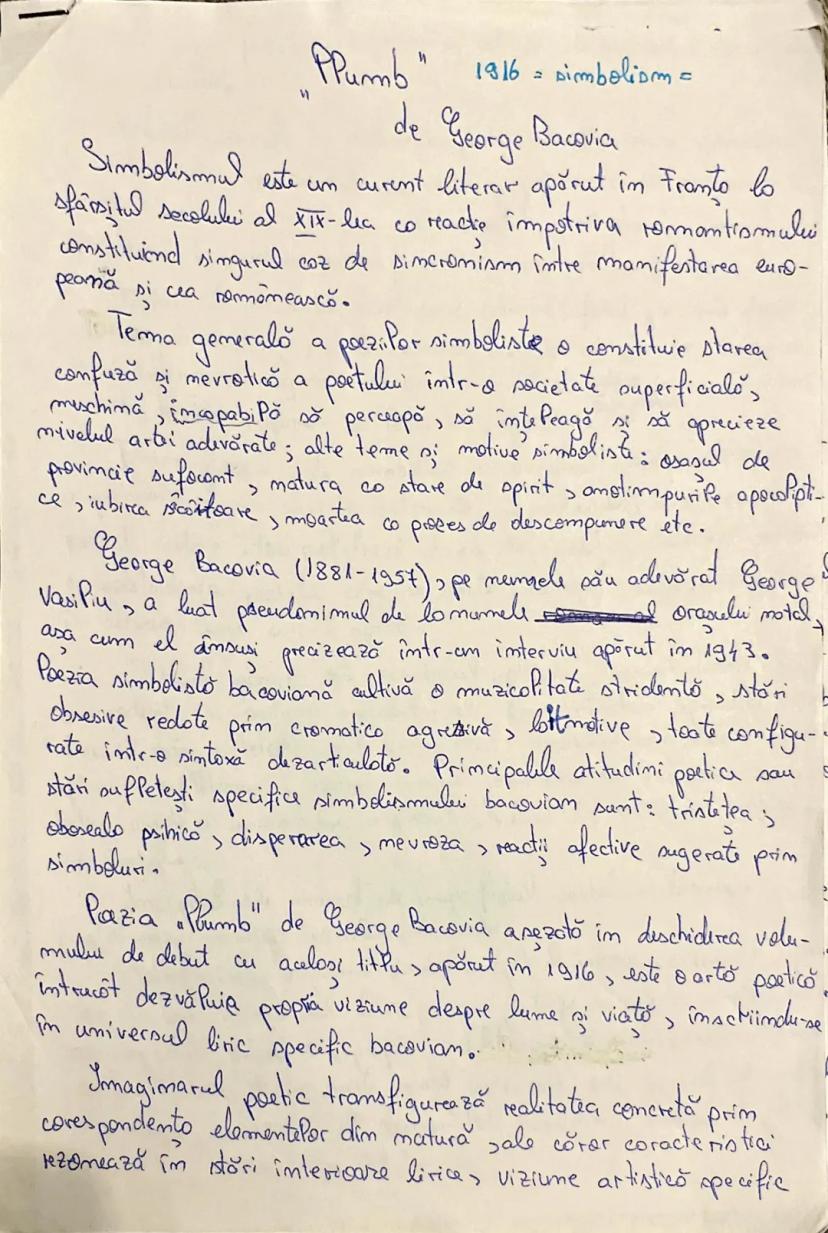 „Plumb" 1916 = simbolism =
de George Bacovia
Simbolismul este un curent literar apărut în Franța la
sfârșitul secolului al XIX-lea ca reacție împotriva romantismului
constituind singurul caz de sincronism între manifestarea euro-
peană și cea românească.
Tema generală a poeziilor simboliste o constituie starea
confuză și nevrotică a poetului într-o societate superficială,
meschină, incapabilă să perceapă, să înțeleagă și să aprecieze
nivelul artei adevărate; alte teme și motive simboliste: orașul de
provincie sufocant, natura ca stare de spirit, anotimpurile apocalipti-
ce, iubirea sâcâitoare, moartea ca proces de descompunere etc.
George Bacovia (1881-1957), pe numele său adevărat George
Vasiliu, a luat pseudonimul de la numele orașului natal,
așa cum el însuși precizează într-un interviu apărut în 1943.
Poezia simbolistă bacoviană cultivă o muzicalitate stridentă, stări
obsesive redate prin cromatica agresivă, laitmotive, toate configu-
rate într-o sintaxă dezarticulată. Principalele atitudini poetice sau
stări sufletești specifice simbolismului bacovian sunt: tristețea;
oboseala psihică, disperarea, nevroza, reacții afective sugerate prin
simboluri.
Poezia „Plumb" de George Bacovia așezată în deschiderea volu-
mului de debut cu același titlu, apărut în 1916, este o artă poetică
întrucât dezvăluie propria viziune despre lume și viață, înscriindu-se
în universul liric specific bacovian.
Imaginarul poetic transfigurează realitatea concretă prin
corespondența elementelor din natură, ale căror caracteristici
rezonează în stări interioare lirice, viziune artistică specific